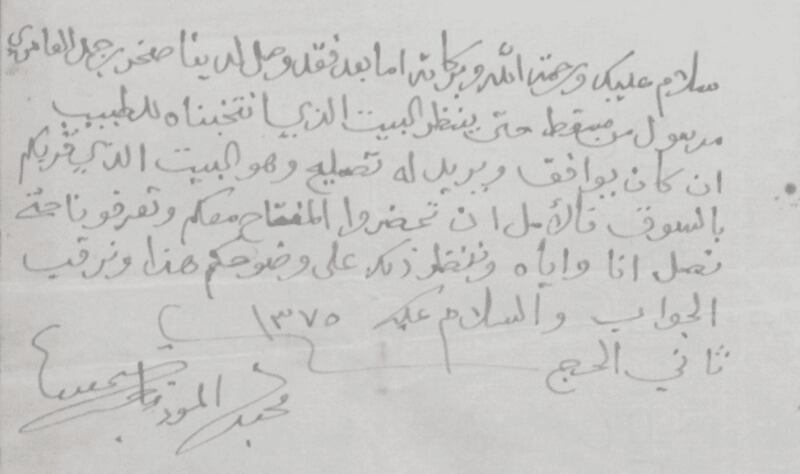 سلام عليك ورحمة الله وبركاته اما بعد فقد وصل لدينا صخر بن حمد العامري
مرسول من مسقط حتى ينظر البيت الذي انتخبناه للطبيب
ان كان يوافق ويريد له تصليح وهو البيت الذي قريكم
بالسوق فالأمل ان تحضروا المفتاح معكم وتعرفونا حتى
نصل انا واياه وننظر ذلك على وضوحكم هذا ونرقب
الجواب والسلام عليك ١٣٧٥
ثاني الحج
محبك المودة